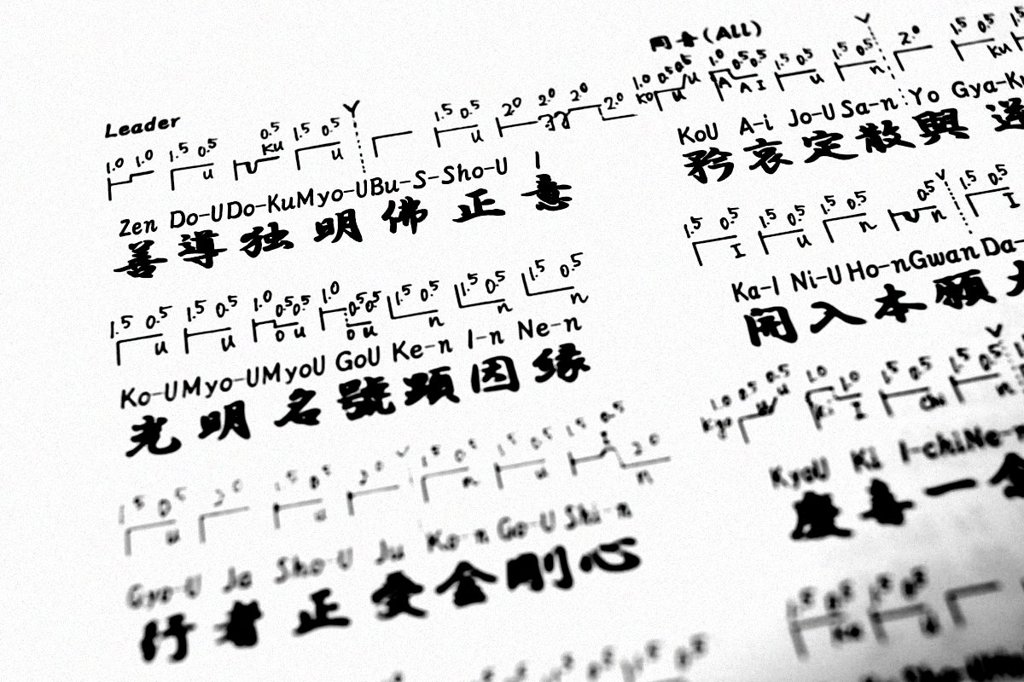 Leader
1.0 1.0 1.5 0.5 0.5 1.5 0.5 1.5 0.5 2.0 2.0 2.0 2.0
u ku u u
Zen Do-U Do-Ku Myo-U Bu-S-Sho-U I
善導独明佛正意
同音(ALL)
1.0 0.5 0.5 1.0 0.5 0.5 1.5 0.5 1.5 0.5 2.0 1.5 0.5
ko u u A A I u n ku
KoU A-i Jo-U Sa-n Yo Gya-
矜哀定散與逆
1.5 0.5 1.5 0.5 1.0 0.5 0.5 1.0 0.5 0.5 1.5 0.5 1.5 0.5 1.5 0.5
u u o u o u n n n
Ko-U Myo-U MyoU GoU Ke-n I-n Ne-n
光明名號顕因縁
1.5 0.5 1.5 0.5 1.5 0.5 0.5 1.5 0.5
I u n n I
Ka-I Ni-U Ho-n Gwan Da-
開入本願
1.5 0.5 2.0 1.5 0.5 2.0 1.5 0.5 1.5 0.5 1.5 0.5 2.0
u u n u i n
Gyo-U Ja Sho-U Ju Ko-n Go-U Shi-n
行者正受金剛心
1.0 0.5 0.5 1.0 1.0 1.5 0.5 1.5 0.5
kyo u u ki I chi n
KyoU Ki I-chi Ne-n
慶喜一念